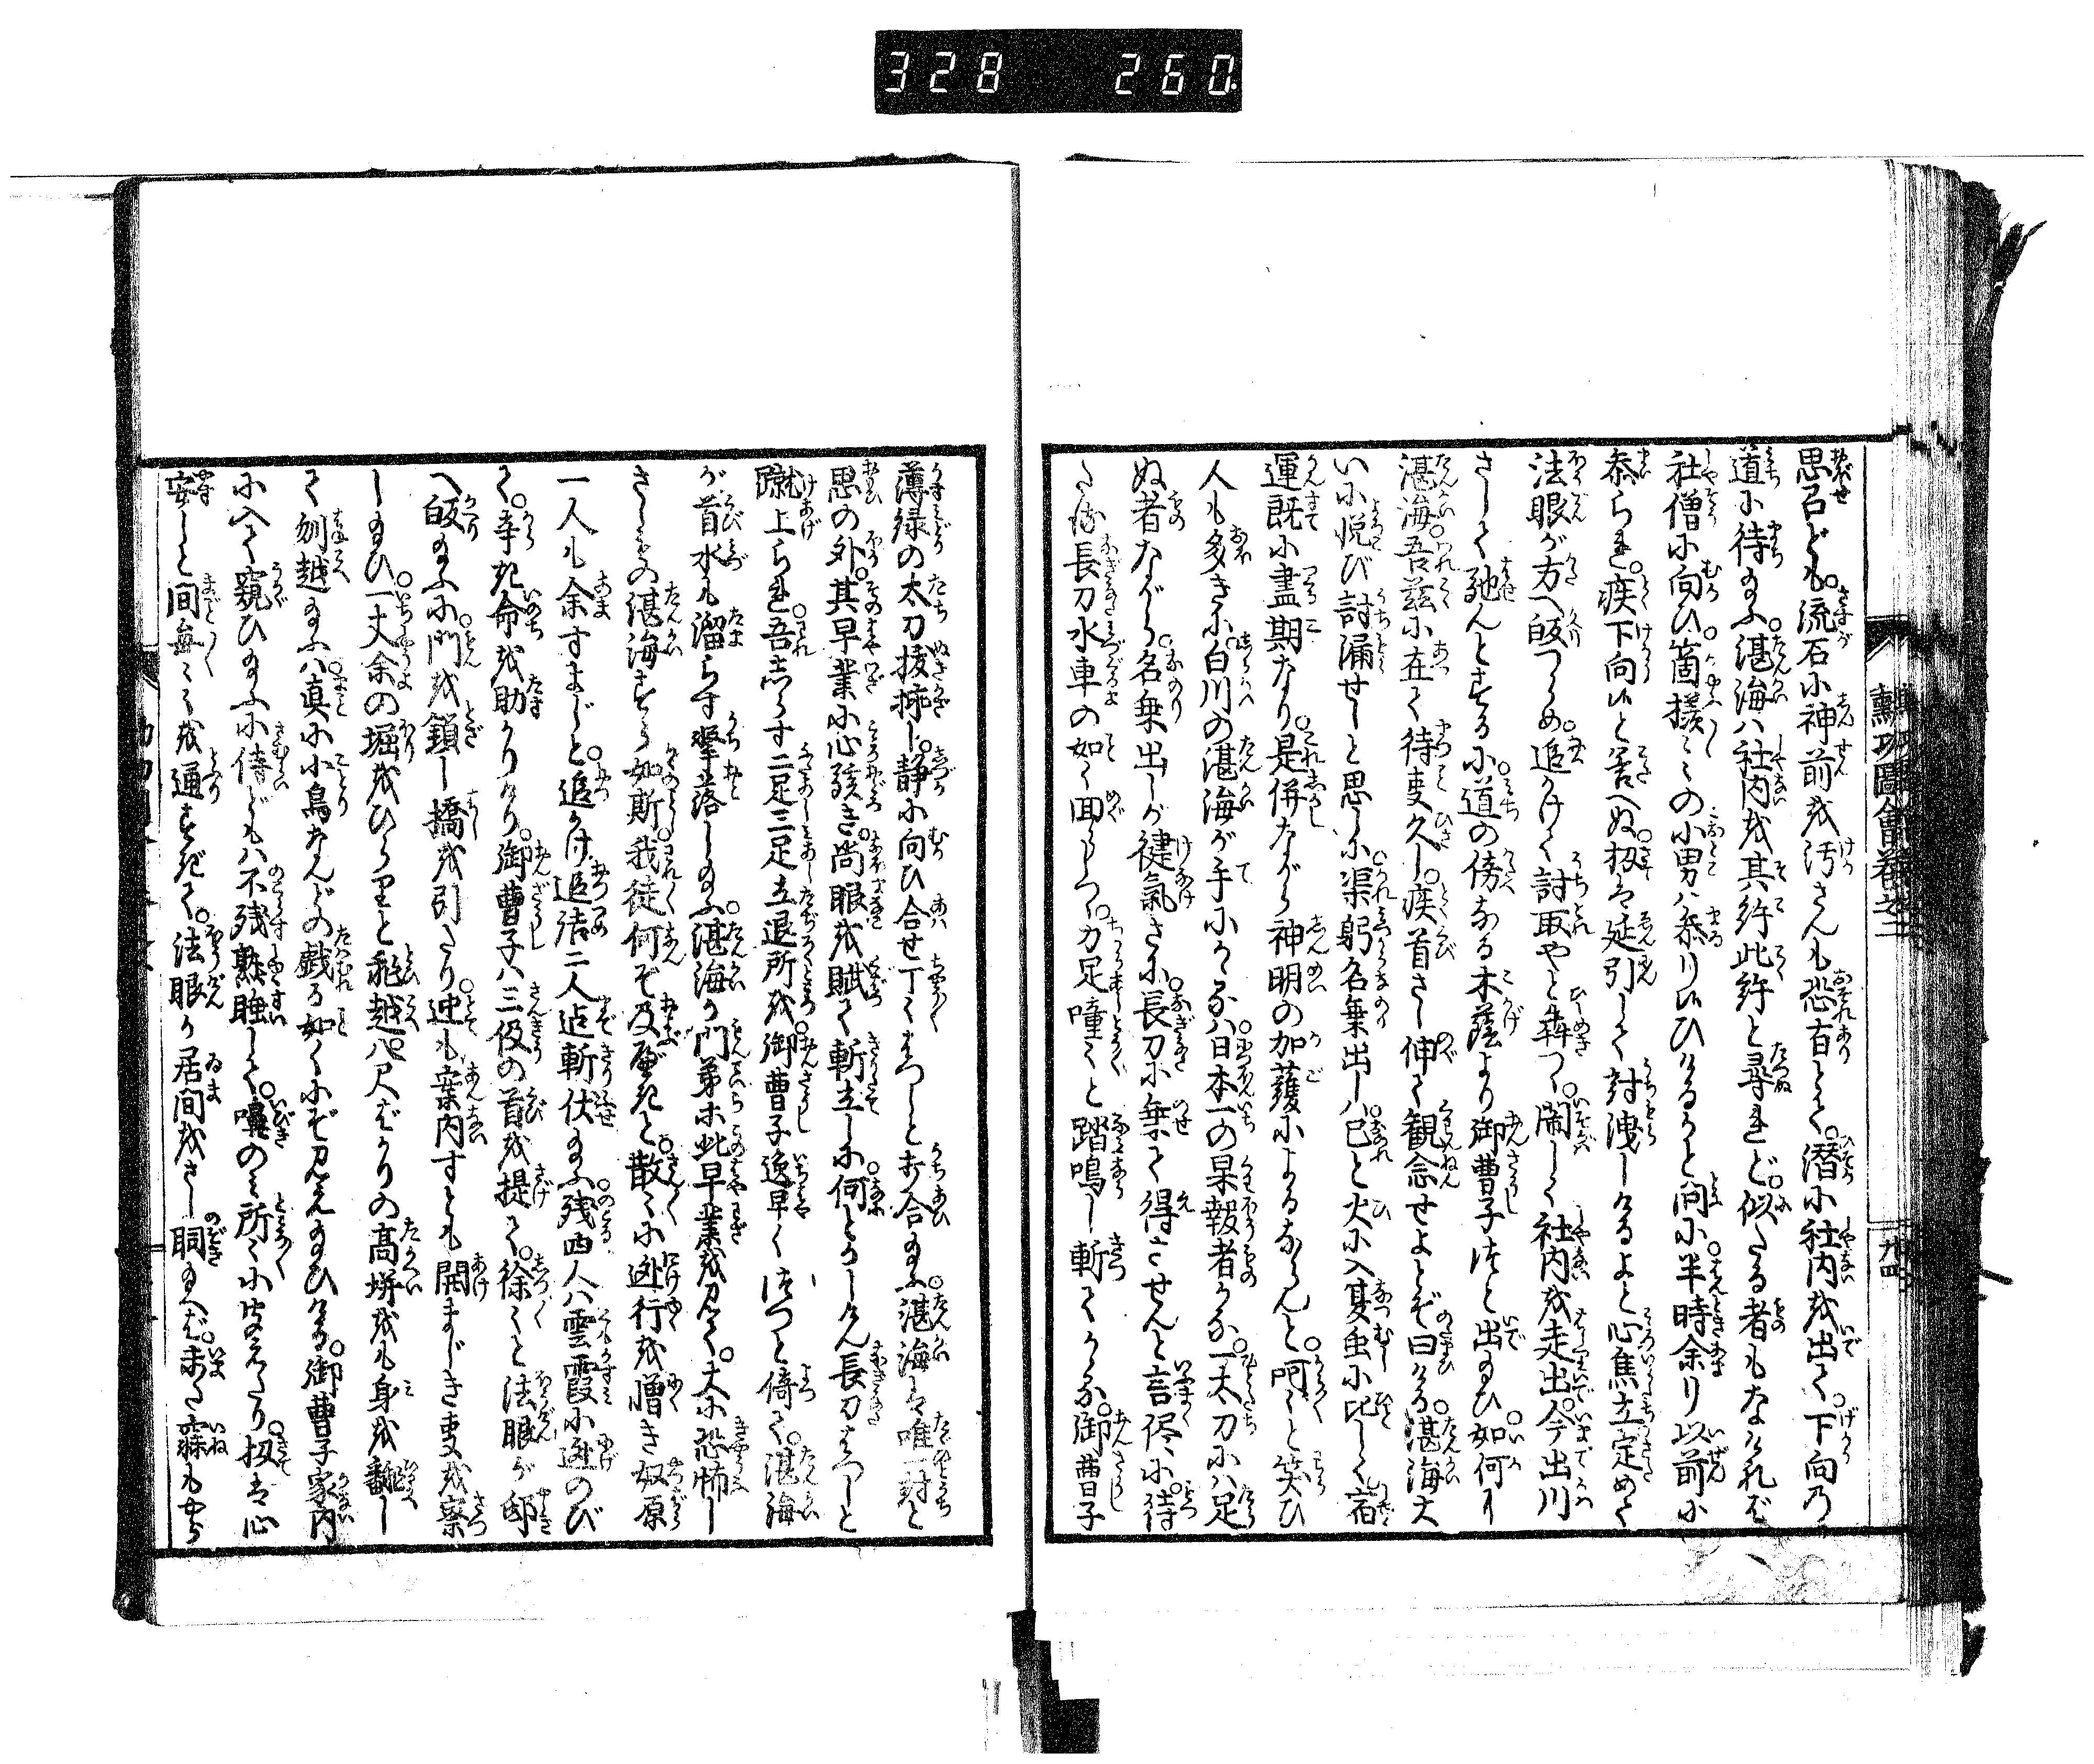 328 260
思召ども。流石に神前を汚さんも恐有とて。潜に社内を出て。下向乃
道に待給ふ。湛海ハ社内を其許此許と尋れど。似たる者もなけれバ
社僧に向ひ。箇様〻〻の小男ハ参り候ひけるかと問に。半時余り以前に
参られ。疾下向候と答へぬ。扨ハ延引して討洩しけるよと心焦立定めて
法眼が方へ皈つらめ。追かけて討取やと犇つゝ。鬧しく社内を走出。今出川
さして馳んとするに。道の傍なる木蔭より御曹子つと出給ひ。如何に
湛海。吾茲に在て待事久し。疾首さし伸て観念せよとぞ曰ける。湛海大
いに悦び討漏せしと思しに。渠躬名乗出しハ。己と火に入夏虫に比しく宿
運既に盡期なり。是併ながら神明の加護によるならんと。呵〻と笑ひ
人も多きに。白川の湛海が手にかるハ。日本一の果報者かな。一太刀にハ足
ぬ者ながら。名乗出しが健氣さに。長刀に乗て得させんと言侭に。待
たる長刀水車の如く回しつゝ。力足噇〻と踏鳴し斬てかゝる。御曹子
勲功圖會巻之二
九四
薄緑の太刀抜挿し。静に向ひ合せ丁〻はつしと打合給ふ。湛海ハ唯一討と
思の外。其早業に心駭き。尚眼を賦て斬立しに。何とかしけん長刀をはつしと
蹴上られ。吾しらず二足三足立退所を。御曹子逸早くつゝと倚て。湛海
が首水も溜らず撃落し給ふ。湛海が門弟等此早業を見て。大に恐怖し
さしもの湛海すら如斯。我徒何ぞ及べきと。散〻に迯行を憎き奴原
一人も余すまじと。追かけ追詰二人迠斬伏給ふ。残四人ハ雲霞に迯のび
て。辛き命を助かりけり。御曹子ハ三伋の首を提て。徐〻と法眼が邸
へ皈給ふに。門を鎖し橋を引たり。迚も案内すとも開まじき事を察
し給ひ。一丈余の堀をひらりと飛越。八尺ばかりの高塀をも身を翻し
て刎越給ふハ。真に小鳥なんどの戯る如くにぞ見え給ひける。御曹子家内
に入て窺ひ給ふに侍どもハ不残熟睡して。嚊のミ所〻に聞えたり。扨ハ心
安しと間毎〻〻を通すぎて。法眼が居間をさし覗給へバ。未た寐もやら